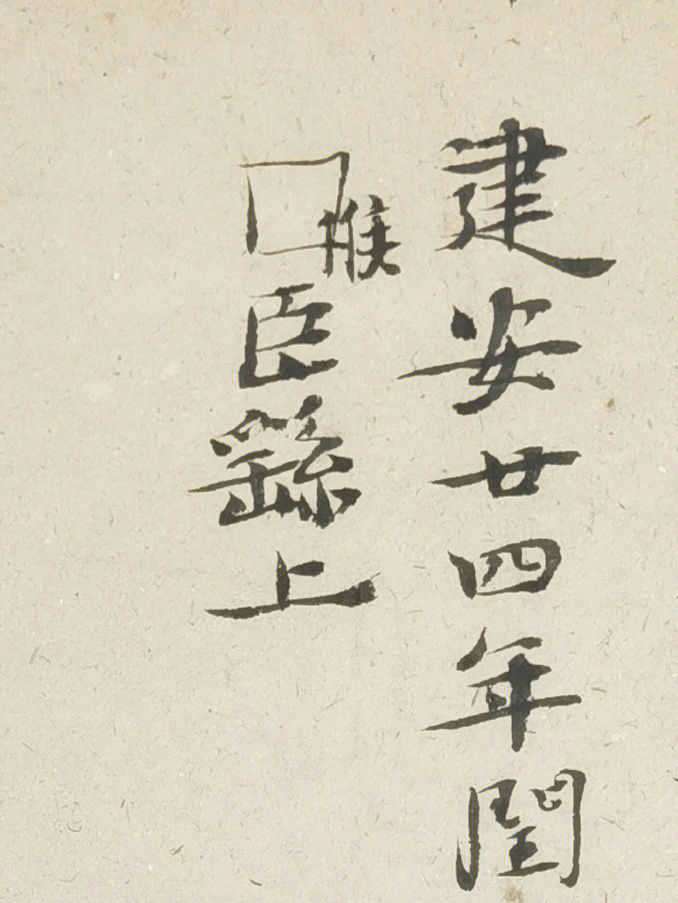 建安廿四年閏
□候臣繇上